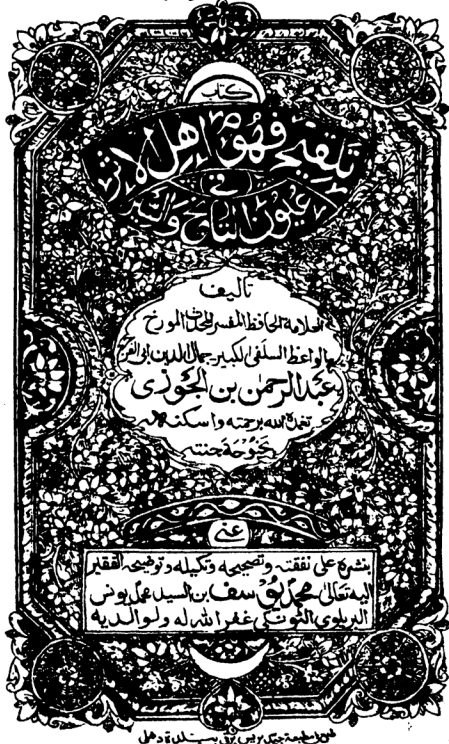 كتاب
تلقيح فهوم اهل الاثر
في
عيون التاريخ والسير
تاليف
العلامة الحافظ المفسر المحدث المورخ
الواعظ السلفى الكبير جمال الدين ابى الفرج
عبد الرحمن بن الجوزى
تغمده الله برحمته واسكنه
بحبوحة جنته
عنى
بنشره على نفقته وتصحيحه وتكميله وتوضيحه الفقير
اليه تعالى محمد يوسف بن السيد محمد يونس
البريلوى التونكى غفر الله له ولوالديه